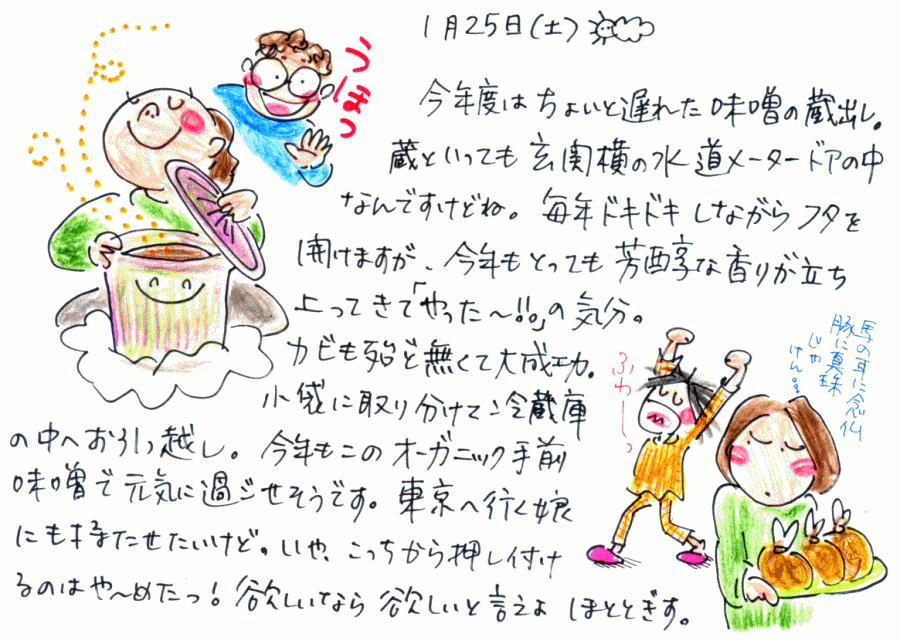 1月25日(土)
うほっ
今年度はちょいと遅れた味噌の蔵出し。
蔵といっても玄関横の水道メータードアの中
なんですけどね。毎年ドキドキしながらフタを
開けますが、今年もとっても芳醇な香りが立ち
上ってきて「やった〜!!。」の気分。
カビも殆ど無くて大成功。
小袋に取り分けて冷蔵庫
の中へお引っ越し。今年もこのオーガニック手前
味噌で元気に過ごせそうです。東京へ行く娘
にも持たせたいけど。いや、こっちから押し付け
るのはや〜めたっ!欲しいなら欲しいと言えよ ほととぎす。
ふわーっ
馬の耳に念仏
豚に真珠
じゃ
けん…